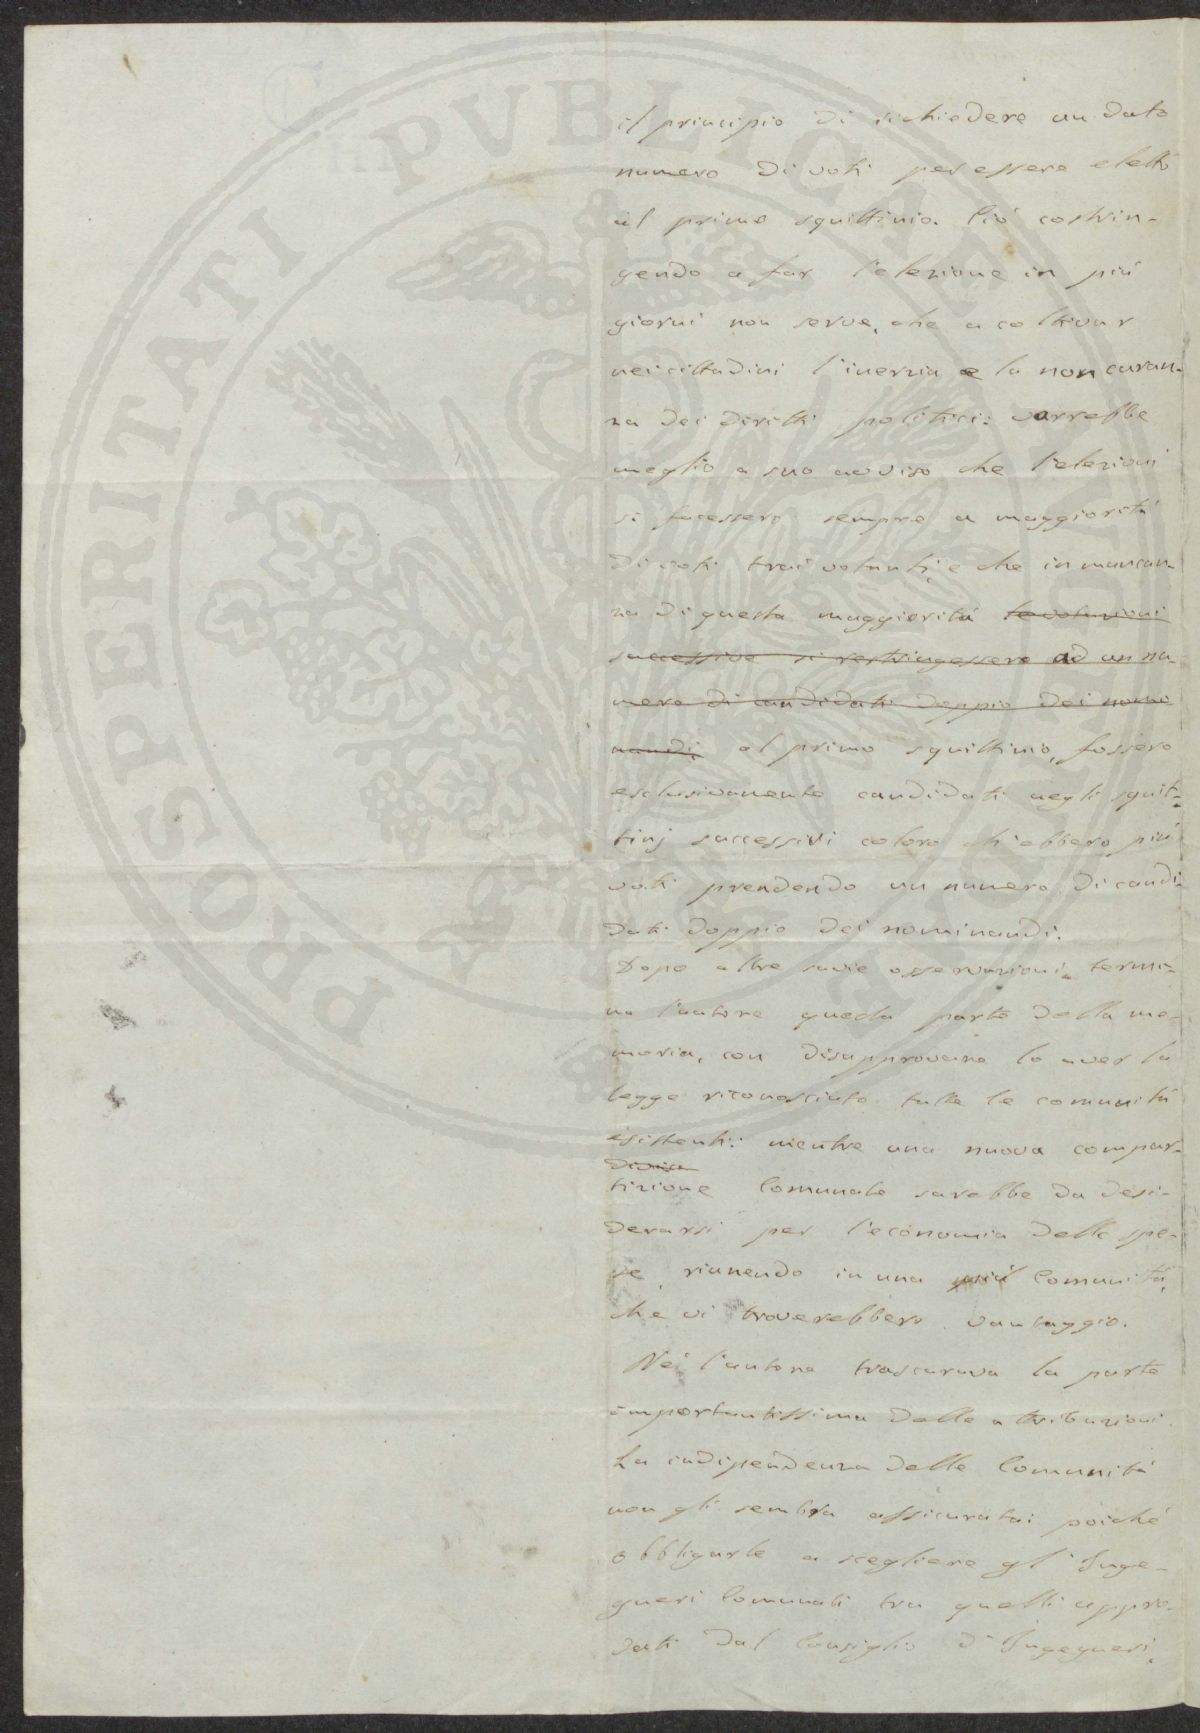 PROSPERITATI PVBLICAE AVGENDAE
il principio di richiedere un dato
numero di voti per essere eletti
al primo squittinio. Ciò costrin-
gendo a far l'elezione in più
giorni non serve, che a coltivar
nei cittadini l'inerzia e la noncuran-
za dei diritti politici: varrebbe
meglio a suo avviso che l'elezioni
si facessero sempre a maggiorità
di voti trai votanti, e che in mancan-
za di questa maggiorità le votazioni
successive si restringessero ad un nu-
mero di candidati doppio dei nomi
nandi, al primo squittinio, fossero
esclusivamente candidati negli squit-
tinj successivi coloro ch'ebbero più
voti prendendo un numero di candi-
dati doppio dei nominandi.
Dopo altre savie osservazioni, termi-
na l'autore questa parte della me-
moria, con disapprovare lo aver la
legge riconosciuto tutte le comunità
esistenti: mentre una nuova compar-
tizione Comunale sarebbe da desi-
derarsi per l'economia delle spe-
se, riunendo in una più Comunità,
che vi troverebbero vantaggio.
Nè l'autore trascurava la parte
importantissima delle attribuzioni.
La indipendenza delle Comunità
non gli sembra assicurata; poiché
obbligarle a scegliere gl'Inge-
gneri Comunali tra quelli appro-
vati dal Consiglio d'Ingegneri,